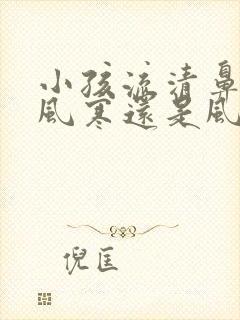 小孩流清鼻
風寒還是風
倪匡